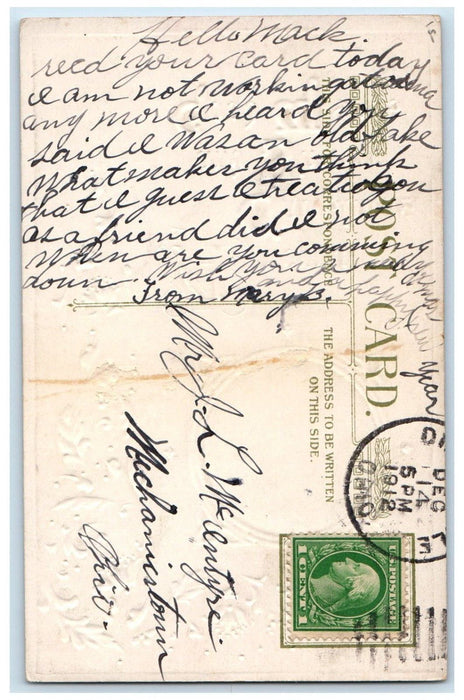 Hello Mack.
recd your card today
I am not working at
any more I heard you
said I was an old jake
What makes you think
that I guess I treated you
as a friend did I not
When are you comming
down. Wish you a
From Mary B.
year
POST CARD.
THIS SIDE FOR CORRESPONDENCE
THE ADDRESS TO BE WRITTEN
ON THIS SIDE.
Mr J. L. McEntyre.
Mechanicstown
Ohio.
DEC
14
5 PM
1912
OHIO
U.S. POSTAGE
1 CENT 1